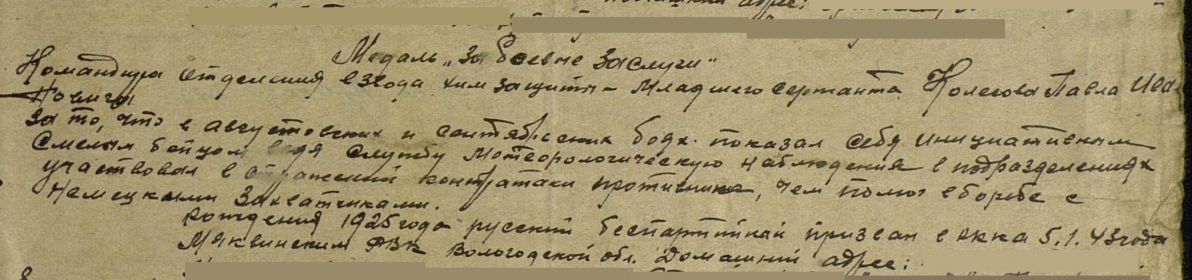 Медаль „За боевые заслуги"
Командира отделения взвода химзащиты – Младшего сержанта Колесова Павла Ива-
новича
За то, что в августовских и сентябрьских боях показал себя инициативным
смелым бойцом ведя службу Метеорологическую наблюдения в подразделениях
участвовал в отражении контратаки противника, чем помог в борьбе с
немецкими захватчиками.
рождения 1925 года русский беспартийный призван в РККА 5.1.43 года
РВК Вологодской обл. Домашний адрес: